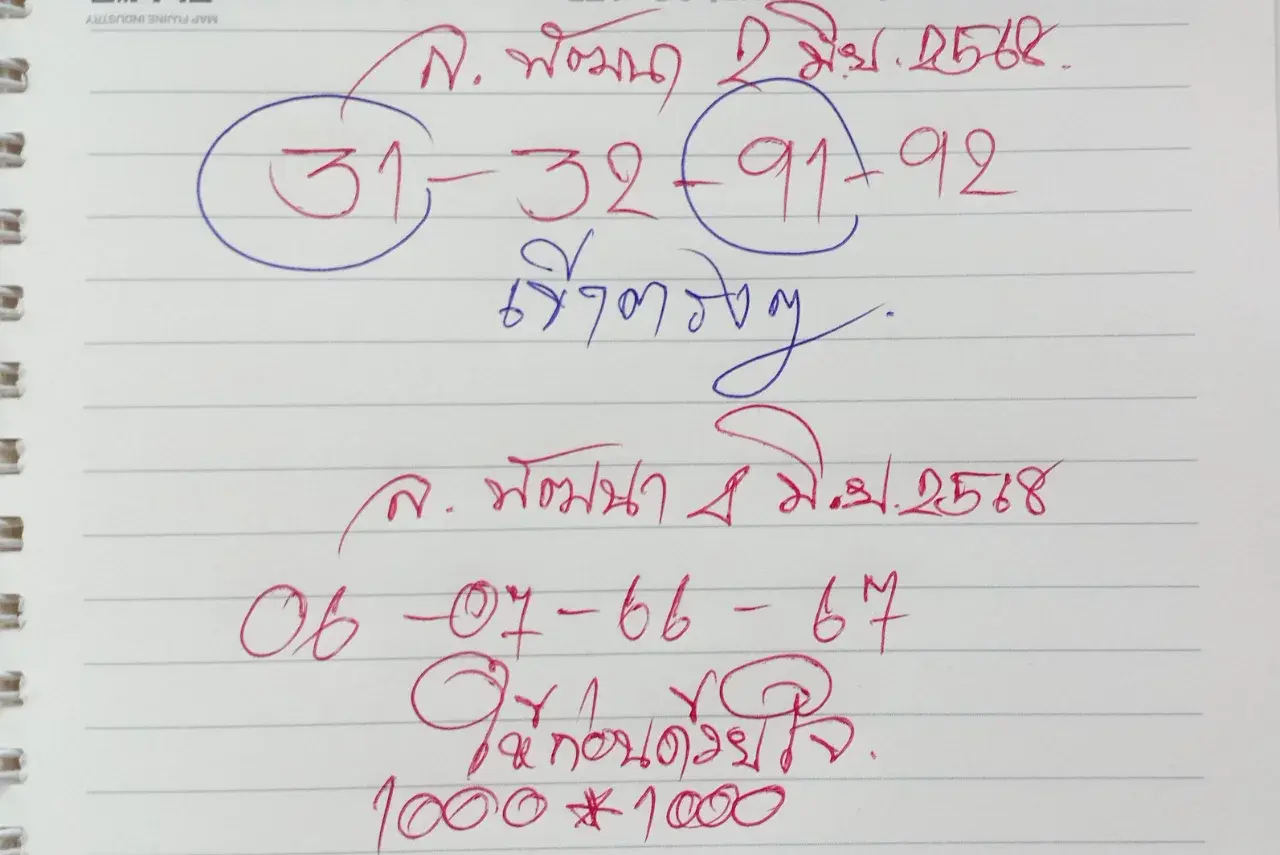 MAP FUJINE INDUSTRY
ล. พัฒนา 2 มิ.ย. 2568.
31 - 32 - 91 - 92
เข้าตรงๆ.
ล. พัฒนา 4 มิ.ย. 2568
06 - 07 - 66 - 67
ให้ก่อนด้วยใจ.
1000*1000